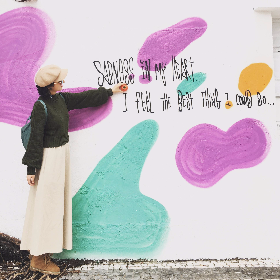 SADNESS IN MY HEART,
I FEEL THE BEST THING I COULD DO...